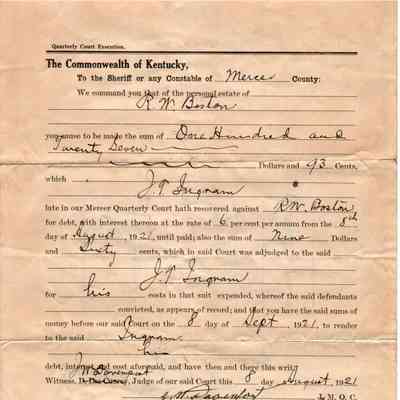 Quarterly Court Execution.
The Commonwealth of Kentucky,
To the Sheriff or any Constable of Mercer County:
We command you that of the personal estate of
R. W. Boston
you cause to be made the sum of One Hundred and
Twenty Seven
Dollars and 93 Cents,
which
J. T. Ingram
late in our Mercer Quarterly Court hath recovered against R.W. Boston
for debt, with interest thereon at the rate of 6 per cent per annum from the 8th
day of August, 1921, until paid; also the sum of Nine Dollars
and Sixty cents, which in said Court was adjudged to the said
J. T. Ingram
for his costs in that suit expended, whereof the said defendants
convicted, as appears of record; and that you have the said sums of
money before our said Court on the 8 day of Sept, 1921, to render
to the said Ingram
his
debt, interest and cost aforesaid, and have then and there this writ.
J W Davenport
Witness, Judge of our Said Court this 8 day August, 1921
J. M. Q. C.